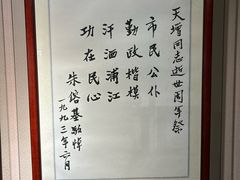 天增同志逝世周年祭
市民公仆
勤政楷模
汗洒浦江
功在民心
朱镕基敬悼
一九九二年六月